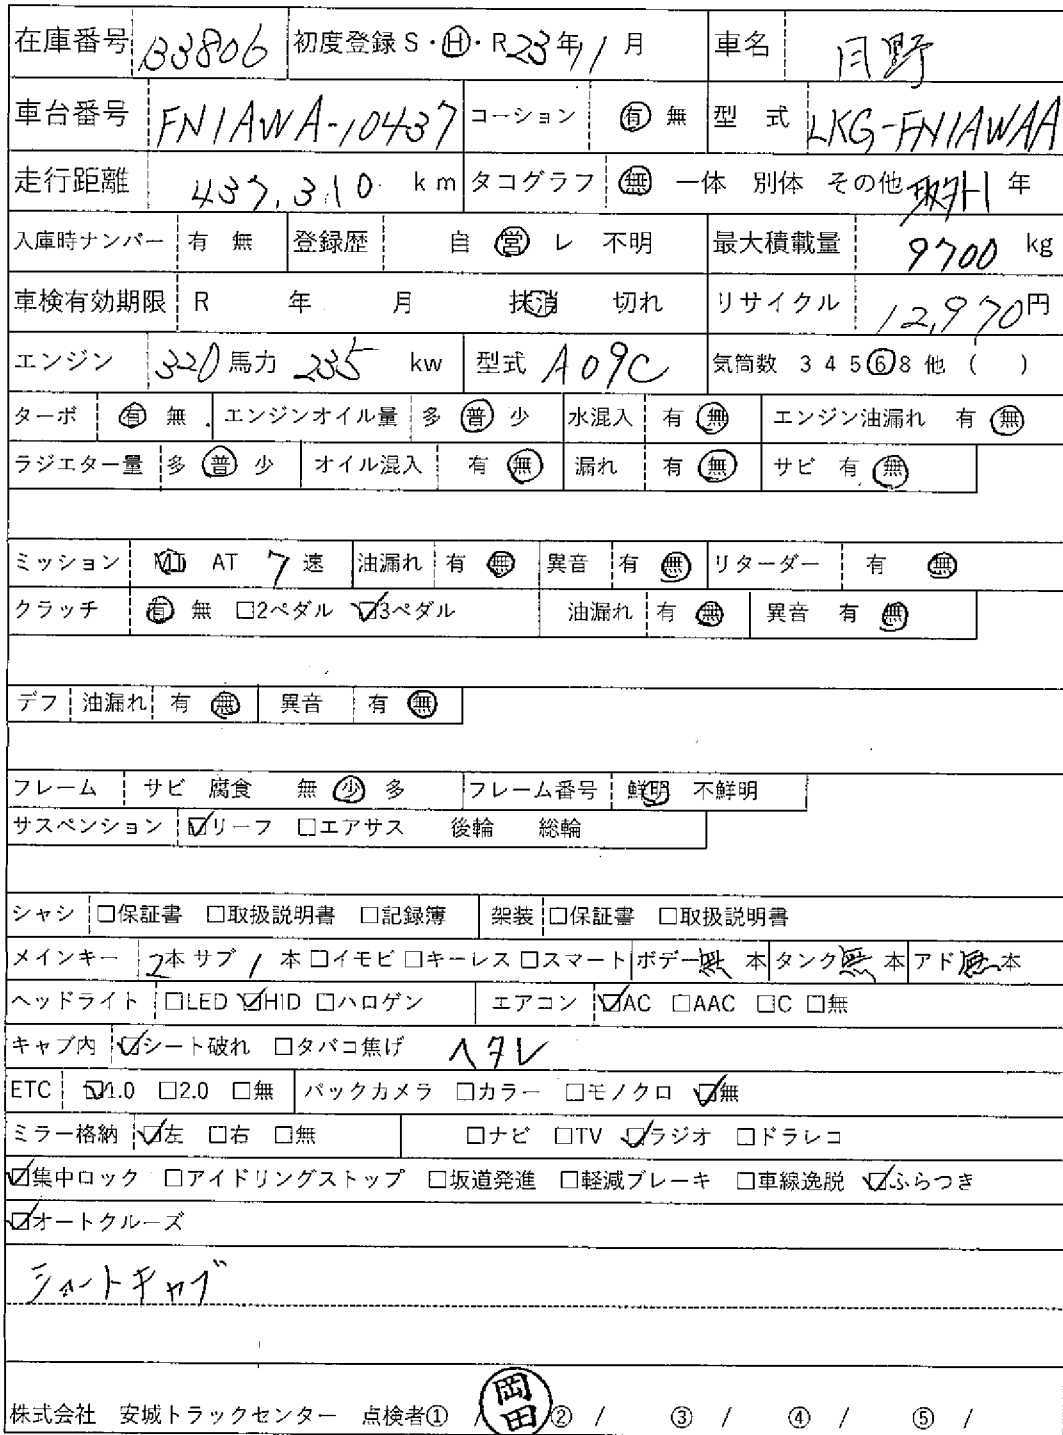 在庫番号 B3806 初度登録 S・Ⓗ・R 23年11月 車名 日野
車台番号 FN1AWA-10437 コーション 有 無 型式 LKG-FN1AWAA
走行距離 437,310 km タコグラフ 無 一体 別体 その他 取外し 年
入庫時ナンバー 有 無 登録歴 自 営 レ 不明 最大積載量 9700 kg
車検有効期限 R 年 月 抹消 切れ リサイクル 12,970円
エンジン 320馬力 235 kw 型式 A09C 気筒数 3 4 5 ⑥ 8 他 ( )
ターボ 有 無 エンジンオイル量 多 普 少 水混入 有 無 エンジン油漏れ 有 無
ラジエター量 多 普 少 オイル混入 有 無 漏れ 有 無 サビ 有 無
ミッション MT AT 7 速 油漏れ 有 無 異音 有 無 リターダー 有 無
クラッチ 有 無 □2ペダル ☑3ペダル 油漏れ 有 無 異音 有 無
デフ 油漏れ 有 無 異音 有 無
フレーム サビ 腐食 無 少 多 フレーム番号 鮮明 不鮮明
サスペンション ☑リーフ □エアサス 後輪 総輪
シャシ □保証書 □取扱説明書 □記録簿 架装 □保証書 □取扱説明書
メインキー 2本 サブ 1 本 □イモビ □キーレス □スマート ボデー 無 本 タンク 無 本 アド 無 本
ヘッドライト □LED ☑HID □ハロゲン エアコン ☑AC □AAC □C □無
キャブ内 ☑シート破れ □タバコ焦げ ヘタレ
ETC ☑1.0 □2.0 □無 バックカメラ □カラー □モノクロ ☑無
ミラー格納 ☑左 □右 □無 □ナビ □TV ☑ラジオ □ドラレコ
☑集中ロック □アイドリングストップ □坂道発進 □軽減ブレーキ □車線逸脱 ☑ふらつき
☑オートクルーズ
ショートキャブ
株式会社 安城トラックセンター 点検者① / 岡田 ② / ③ / ④ / ⑤ /